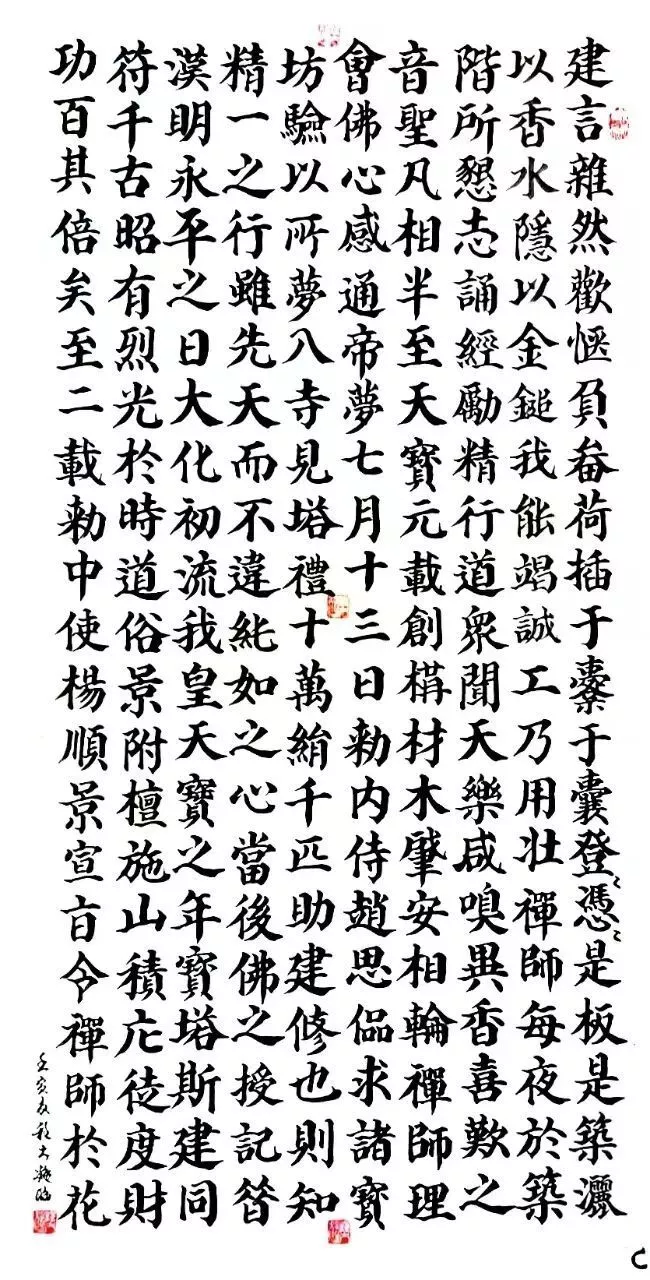 建言雜然歡愜負畚荷插于橐于囊登〻憑〻是板是築灑
以香水隱以金鎚我能竭誠工乃用壯禪師每夜於築
階所懇志誦經勵精行道眾聞天樂咸嗅異香喜歎之
音聖凡相半至天寶元載創構材木肇安相輪禪師理
會佛心感通帝夢七月十三日勑內侍趙思侃求諸寶
坊驗以所夢入寺見塔禮十萬絹千匹助建修也則知
精一之行雖先天而不違純如之心當後佛之授記昔
漢明永平之日大化初流我皇天寶之年寶塔斯建同
符千古昭有烈光於時道俗景附檀施山積庀徒度財
功百其倍矣至二載勑中使楊順景宣旨令禪師於花
壬寅